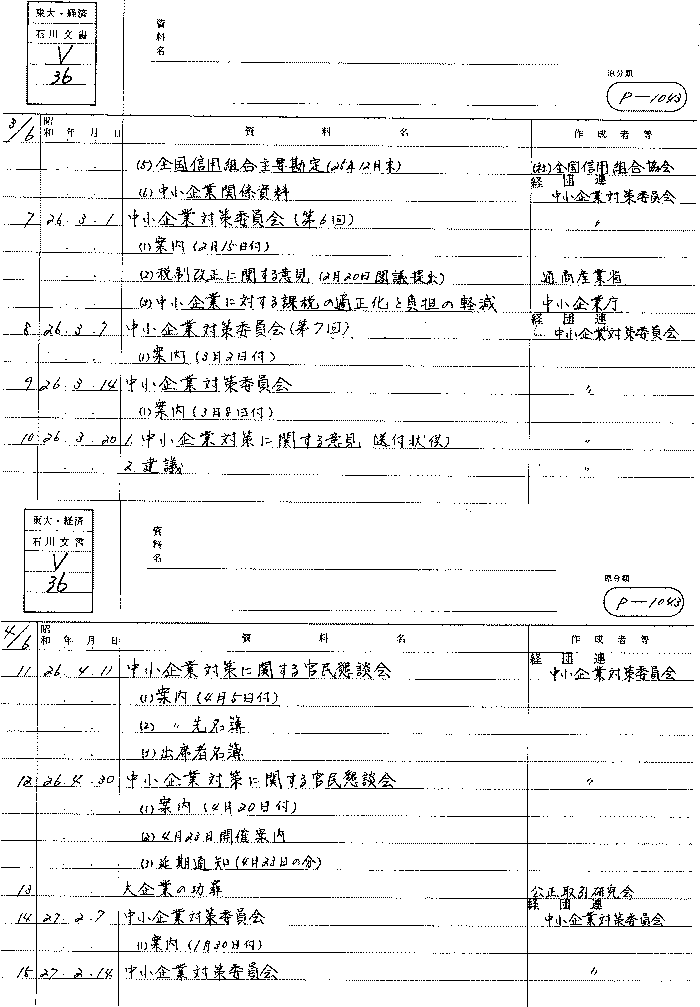 東大・経済
石川文書
V
36
資料名
原分類
P-1043
3/6 昭和 年 月 日 資料名 作成者等
(5)全国信用組合主要勘定(25年12月末) (社)全国信用組合協会
(6)中小企業関係資料 経団連 中小企業対策委員会
7 26.3.1 中小企業対策委員会(第6回) 〃
(1)案内(2月15日付)
(2)税制改正に関する意見(2月20日閣議提出) 通商産業省
(3)中小企業に対する課税の適正化と負担の軽減 中小企業庁
8 26.3.7 中小企業対策委員会(第7回) 経団連 中小企業対策委員会
(1)案内(3月2日付)
9 26.3.14 中小企業対策委員会 〃
(1)案内(3月8日付)
10 26.3.20 1.中小企業対策に関する意見 送付状(仮) 〃
2.建議 〃
東大・経済
石川文書
V
36
資料名
原分類
P-1043
4/6 昭和 年 月 日 資料名 作成者等
11 26.4.11 中小企業対策に関する官民懇談会 経団連 中小企業対策委員会
(1)案内(4月5日付)
(2) 〃 先名簿
(3)出席者名簿
12 26.4.30 中小企業対策に関する官民懇談会 〃
(1)案内(4月20日付)
(2)4月23日開催案内
(3)延期通知(4月23日の分)
13 大企業の功罪 公正取引研究会
14 27.2.7 中小企業対策委員会 経団連 中小企業対策委員会
(1)案内(1月30日付)
15 27.2.14 中小企業対策委員会 〃